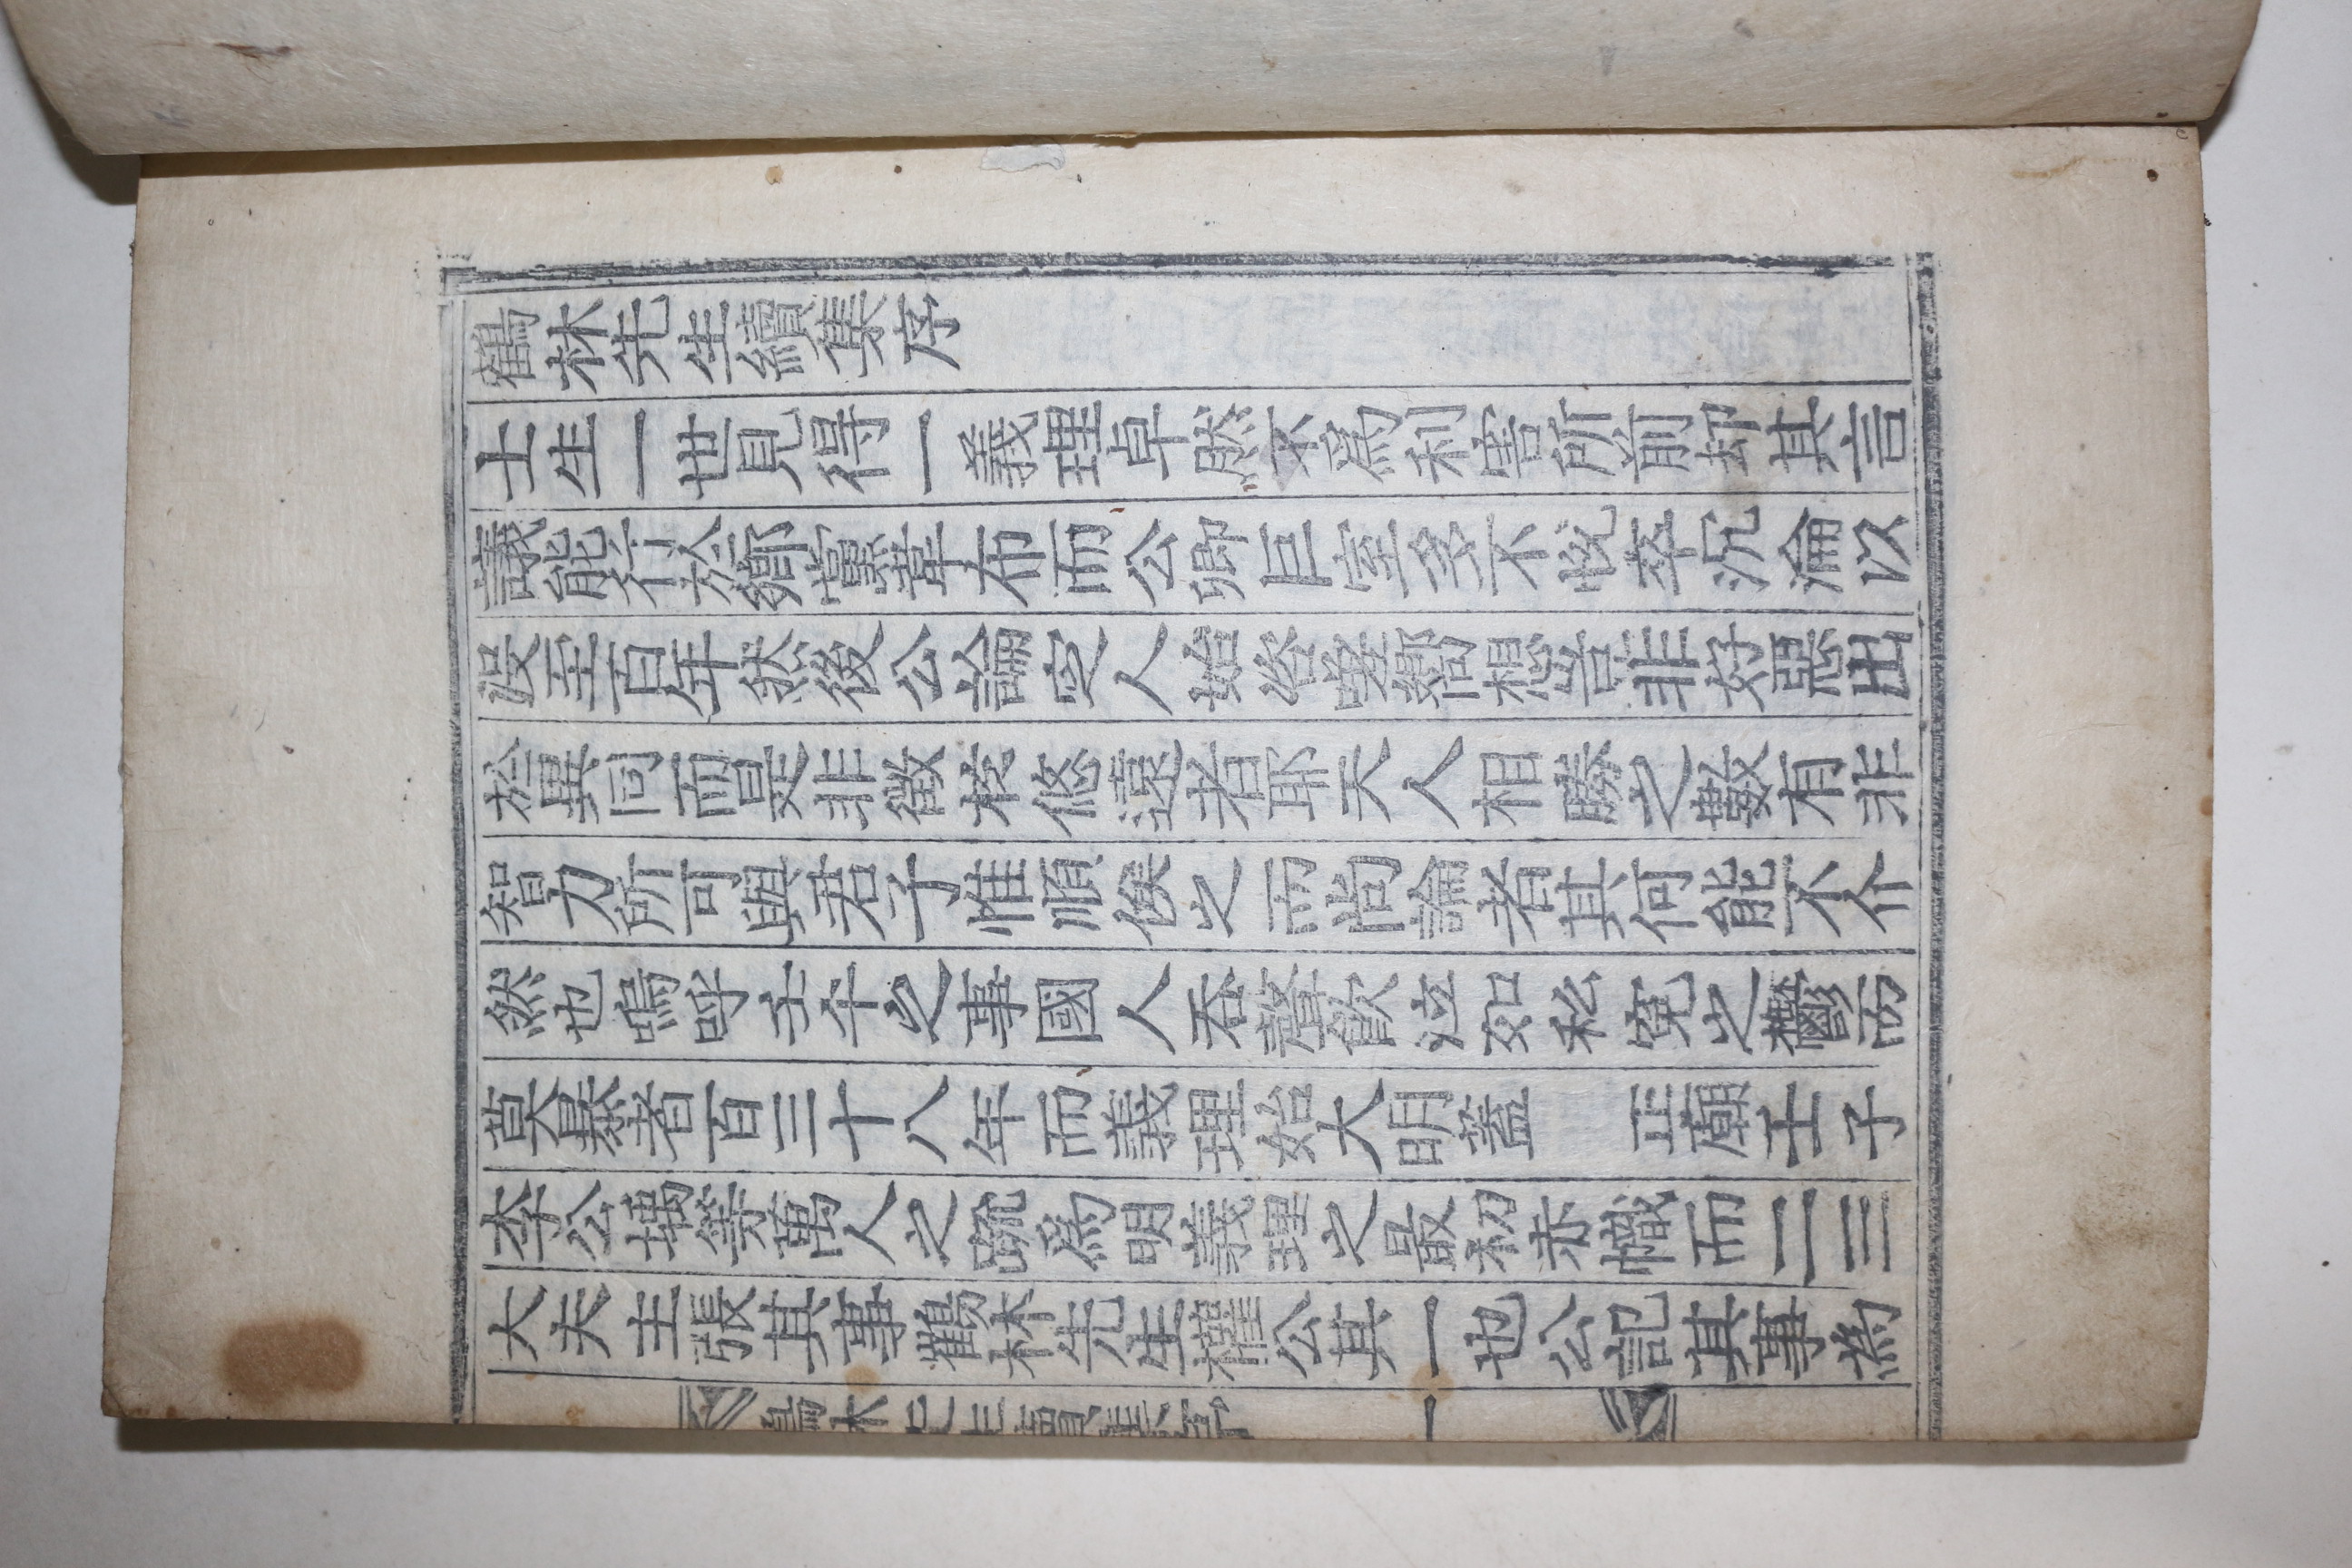 鶴林先生續集序
士生一世見得一義理卓然不爲利害所前却其言
議能行於鄉黨韋布而公卿巨室多不悅卒沉淪以
沒至百年然後公論定人始咨嗟嚮想言非好惡出
於異同而是非徵於悠遠者耶天人相勝之數有非
智力所可與君子惟順俟之而尙論者其何能不介
然也嗚呼壬午之事國人吞聲飮泣如私寃之鬱而
莫暴者百三十八年而義理始大明盖　正廟壬子
李公㙖等萬人之疏爲明義理之最初赤幟而二三
大夫主張其事鶴林先生權公其一也公記其事爲
鶴林先生續集序　一